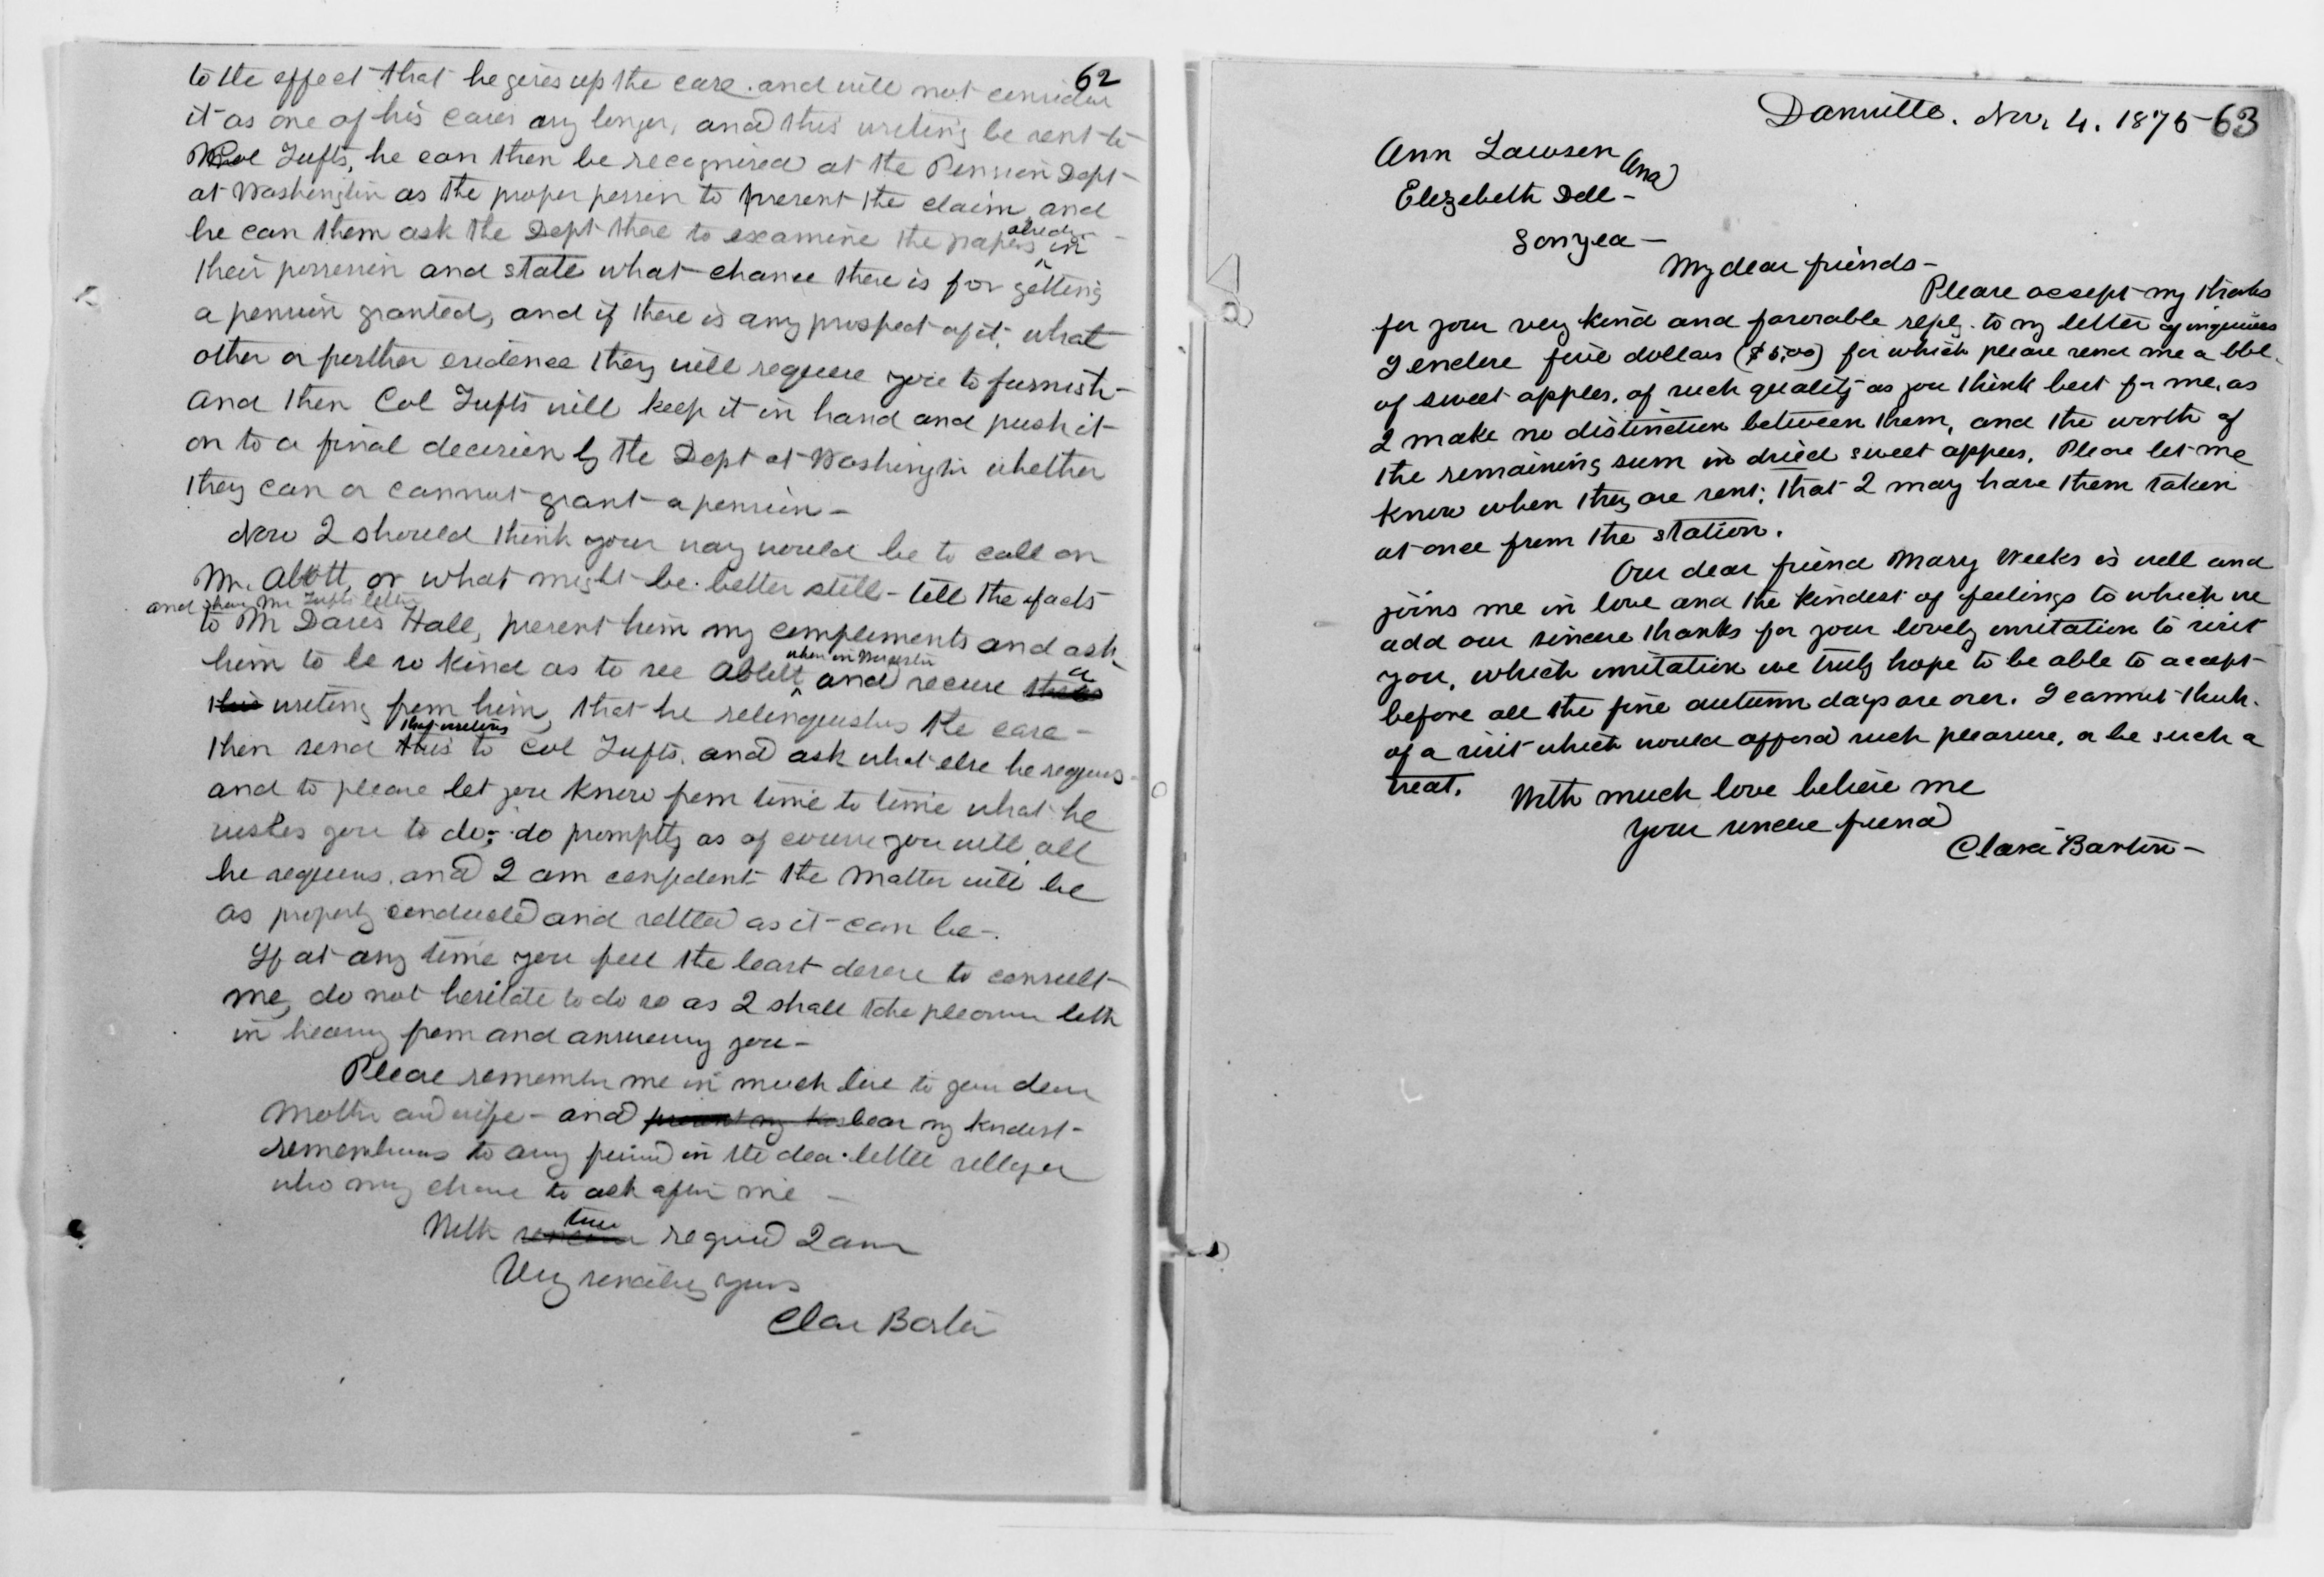 62
to the effect that he gives up the case. and will not consider
it as one of his cases any longer, and this writing be sent to
Col Tufts, he can then be recognised at the Pension Dept
at Washington as the proper person to present the claim, and
he can them ask the Dept there to examine the papers already in
their possession and state what chance there is for getting
a pension granted, and if there is any prospect of it, what
other or further evidence they will require you to furnish-
And then Col Tufts will keep it in hand and push it
on to a final decision by the Dept at Washington whether
they can or cannot grant a pension-
Now I should think your way would be to call on
Mr. Abott, or what might be better still - tell the facts
and show Mr Tufts letter
to Mr Davis Hall, present him my compliments and ask
him to be so kind as to see Abbott when in Worcester and secure a
this writing from him, that he relinquishes the case-
then send this that writing to Col Tufts, and ask what else he requires-
and to please let you know from time to time what he
wishes you to do; do promptly as of course you will, all
he requires, and I am confident the matter will be
as properly conducted and settled as it can be-.
If at any time you feel the least desire to consult
me, do not hesitate to do so as I shall take pleasure both
in hearing from and answering you-
Please remember me in much love to your dear
Mother and wife - and present my bear my kindest-
remembrances to any friend in the dear little village
who may chance to ask after me -
With sincere true regard I am
Very sincerely yours
Clara Barton
Danville. Nov. 4. 1876 63
Ann Lawsen and
Elizebeth Dell -
Sonyea -
My dear friends -
Please accept my thanks
for your very kind and favorable reply. to my letter of inquiries
I enclose five dollars ($5,00) for which please send me a bbl.
of sweet apples, of such quality as you think best for me, as
I make no distinction between them, and the worth of
the remaining sum in dried sweet apples. Please let me
know when they are sent; that I may have them taken
at once from the station.
Our dear friend Mary Weeks is well and
joins me in love and the kindest of feelings to which we
add our sincere thanks for your lovely invitation to visit
you, which invitation we truly hope to be able to accept
before all the fine autumn days are over. I cannot think.
of a visit which would afford such pleasure, or be such a
treat. With much love believe me
your sincere friend
Clara Barton -